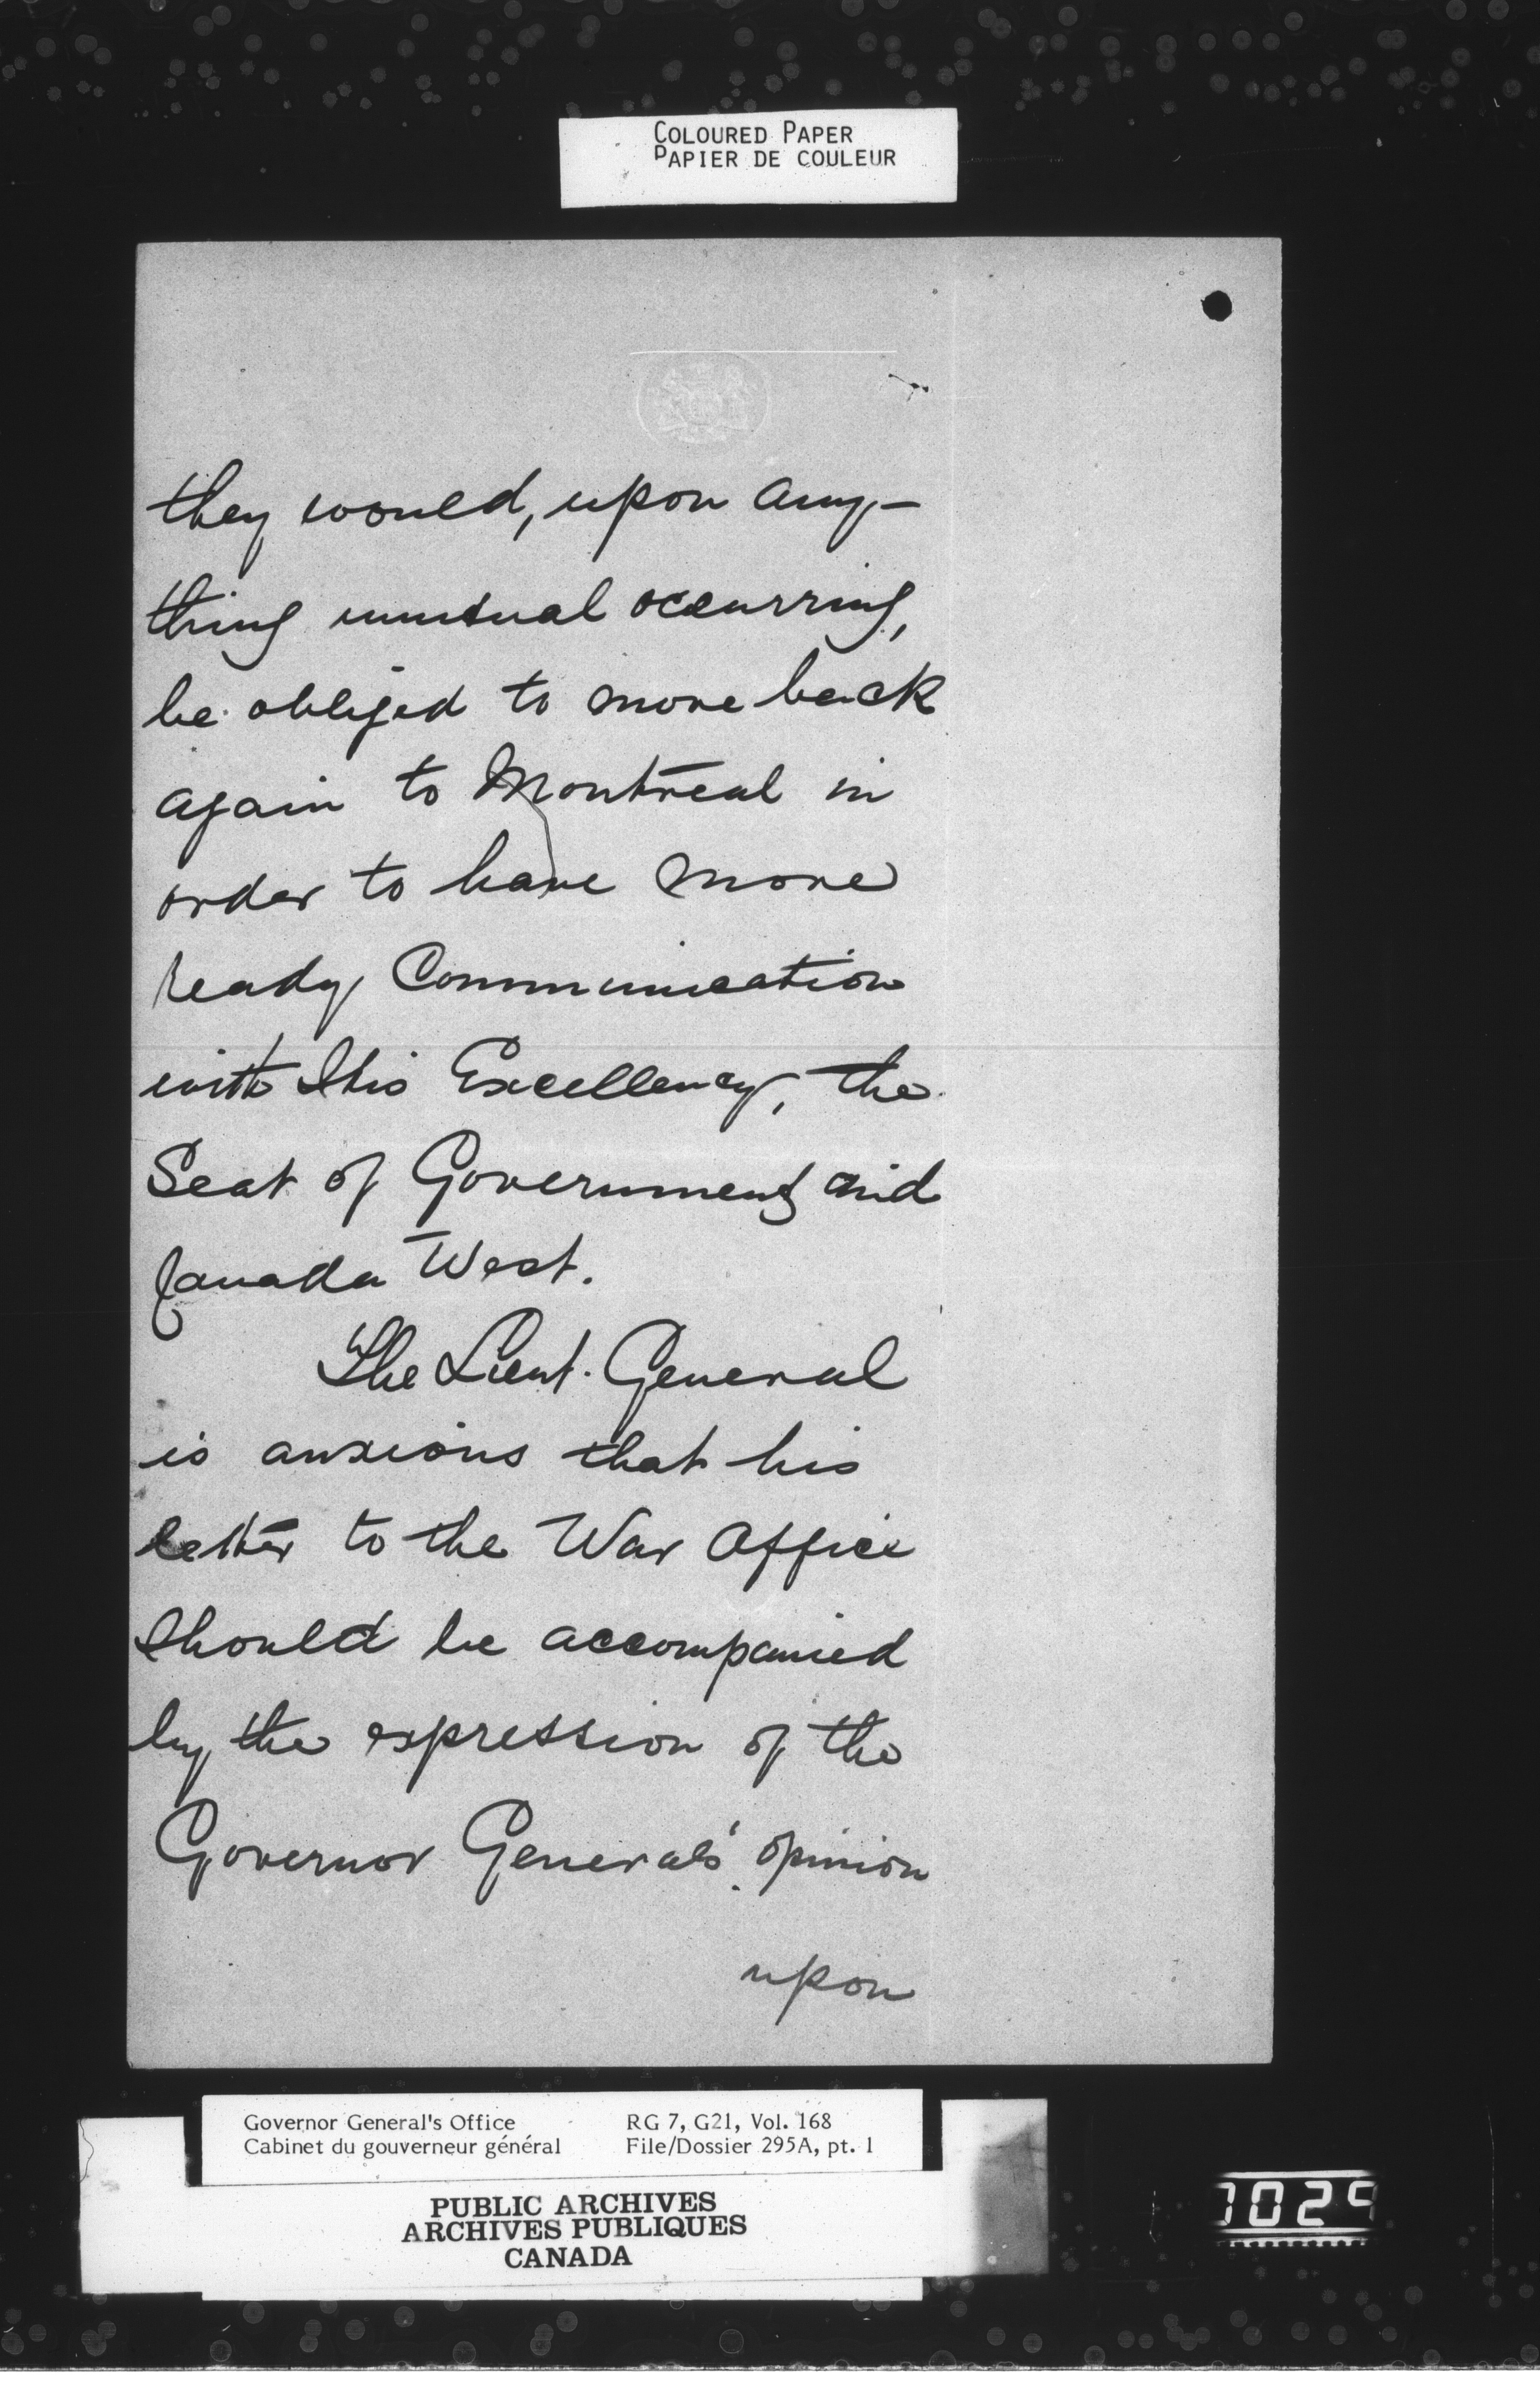 COLOURED PAPER
PAPIER DE COULEUR
they would, upon any-
thing unusual occurring,
be obliged to move back
again to Montreal in
order to have more
ready Communication
with His Excellency, the
Seat of Government and
Canada West.
The Lieut. General
is anxious that his
letter to the War Office
should be accompanied
by the expression of the
Governor General's opinion
upon
Governor General's Office RG 7, G21, Vol. 168
Cabinet du gouverneur général File/Dossier 295A, pt. 1
PUBLIC ARCHIVES
ARCHIVES PUBLIQUES
CANADA
1029